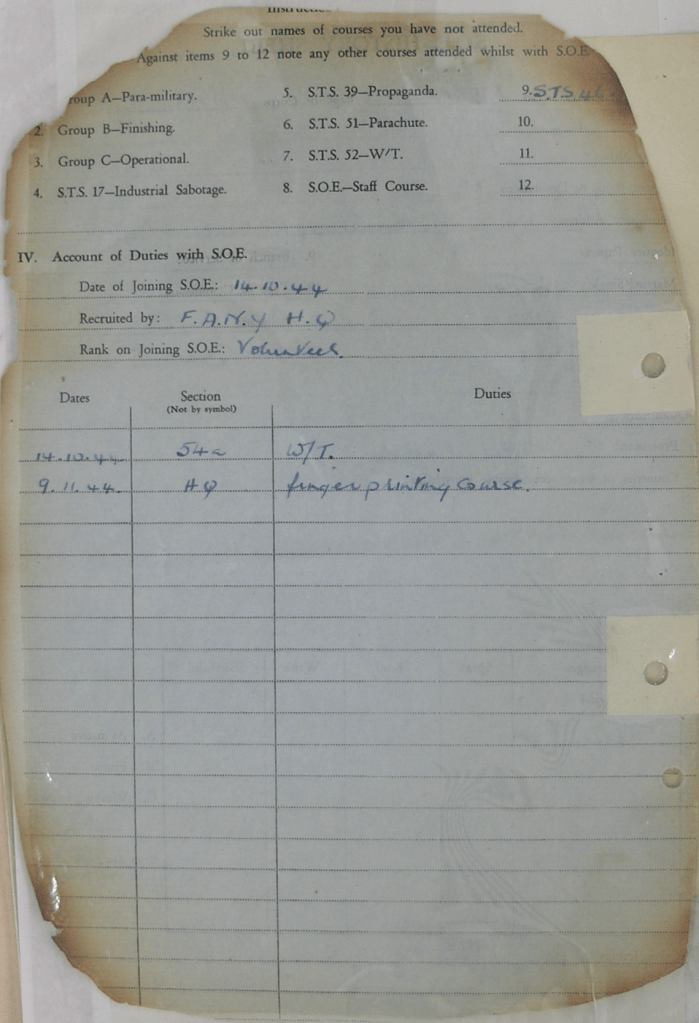 Strike out names of courses you have not attended.
Against items 9 to 12 note any other courses attended whilst with S.O.E.
roup A—Para-military.
2. Group B—Finishing.
3. Group C—Operational.
4. S.T.S. 17—Industrial Sabotage.
5. S.T.S. 39—Propaganda.
6. S.T.S. 51—Parachute.
7. S.T.S. 52—W/T.
8. S.O.E.—Staff Course.
9. S.T.S. 46
10.
11.
12.
IV. Account of Duties with S.O.E.
Date of Joining S.O.E.: 14.10.44
Recruited by: F.A.N.Y H.Q
Rank on Joining S.O.E.: Volunteer.
Dates Section Duties
(Not by symbol)
14.10.44. 54a W/T.
9.11.44. HQ finger printing course.